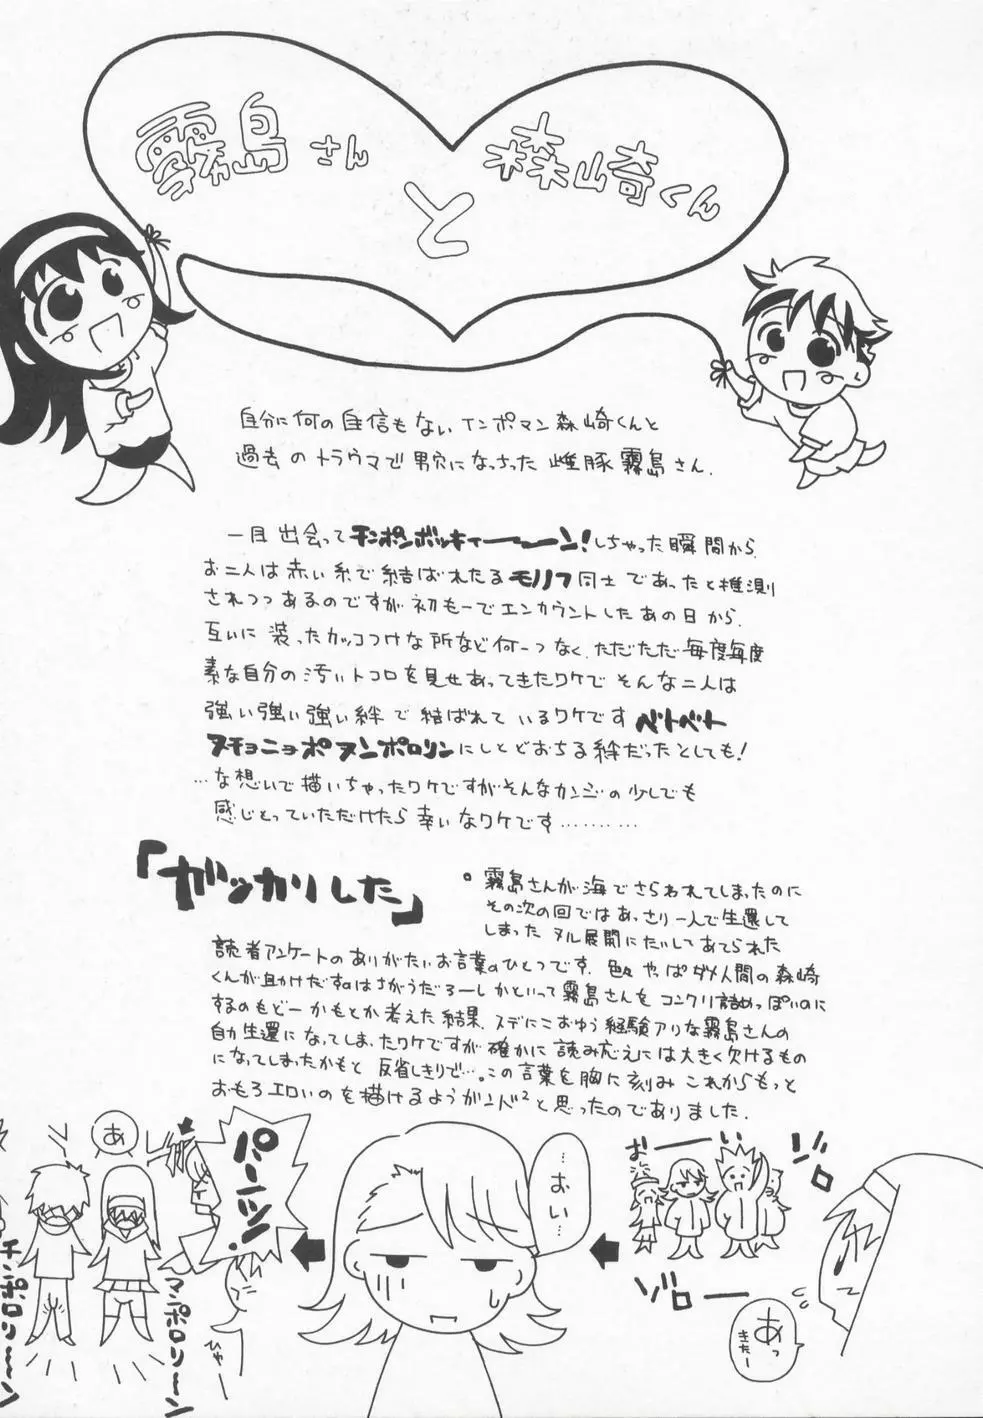 霧島さん
と
森崎くん
自分に何の自信もないインポマン森崎くんと
過去のトラウマで男穴になっちった雌豚霧島さん.
一目出会ってチンポンボッキィーーーン!しちゃった瞬間から.
お二人は赤い糸で結ばれたるモノノフ同士であったと推測
されつつあるのですが初もーでエンカウントしたあの日から.
互いに装ったカッコつけな所など何一つなく.ただただ毎度毎度
素な自分の汚いトコロを見せあってきたワケでそんな二人は
強い強い強い絆で結ばれているワケですベトベト
ヌチョニョポヌンポロリンにしとどおちる絆だったとしても!
…な想いで描いちゃったワケですがそんなカンジの少しでも
感じとっていただけたら幸いなワケです………
「ガッカリした」
霧島さんが海でさらわれてしまったのに
その次の回ではあっさり一人で生還して
しまったヌル展開にたいしてあてられた
読者アンケートのありがたいお言葉のひとつです.色々やっぱダメ人間の森崎
くんが助けだすのはさがうだろーしかといって霧島さんをコンクリ詰めっぽいのに
するのもどーかもとか考えた結果.スデにこおゆう経験アリな霧島さんの
自力生還になってしまったワケですが確かに読み応えには大きく欠けるもの
になってしまったかもと反省しきりで….この言葉を胸に刻みこれからもっと
おもろエロいのを描けるようがんバ²と思ったのでありました.
おーーい
ゾロ
ゾロー
あっ
きたー
…おい…
パーーンッ!
ひゃー
あ
マンポロリ〜ン
チンポロリ〜ン